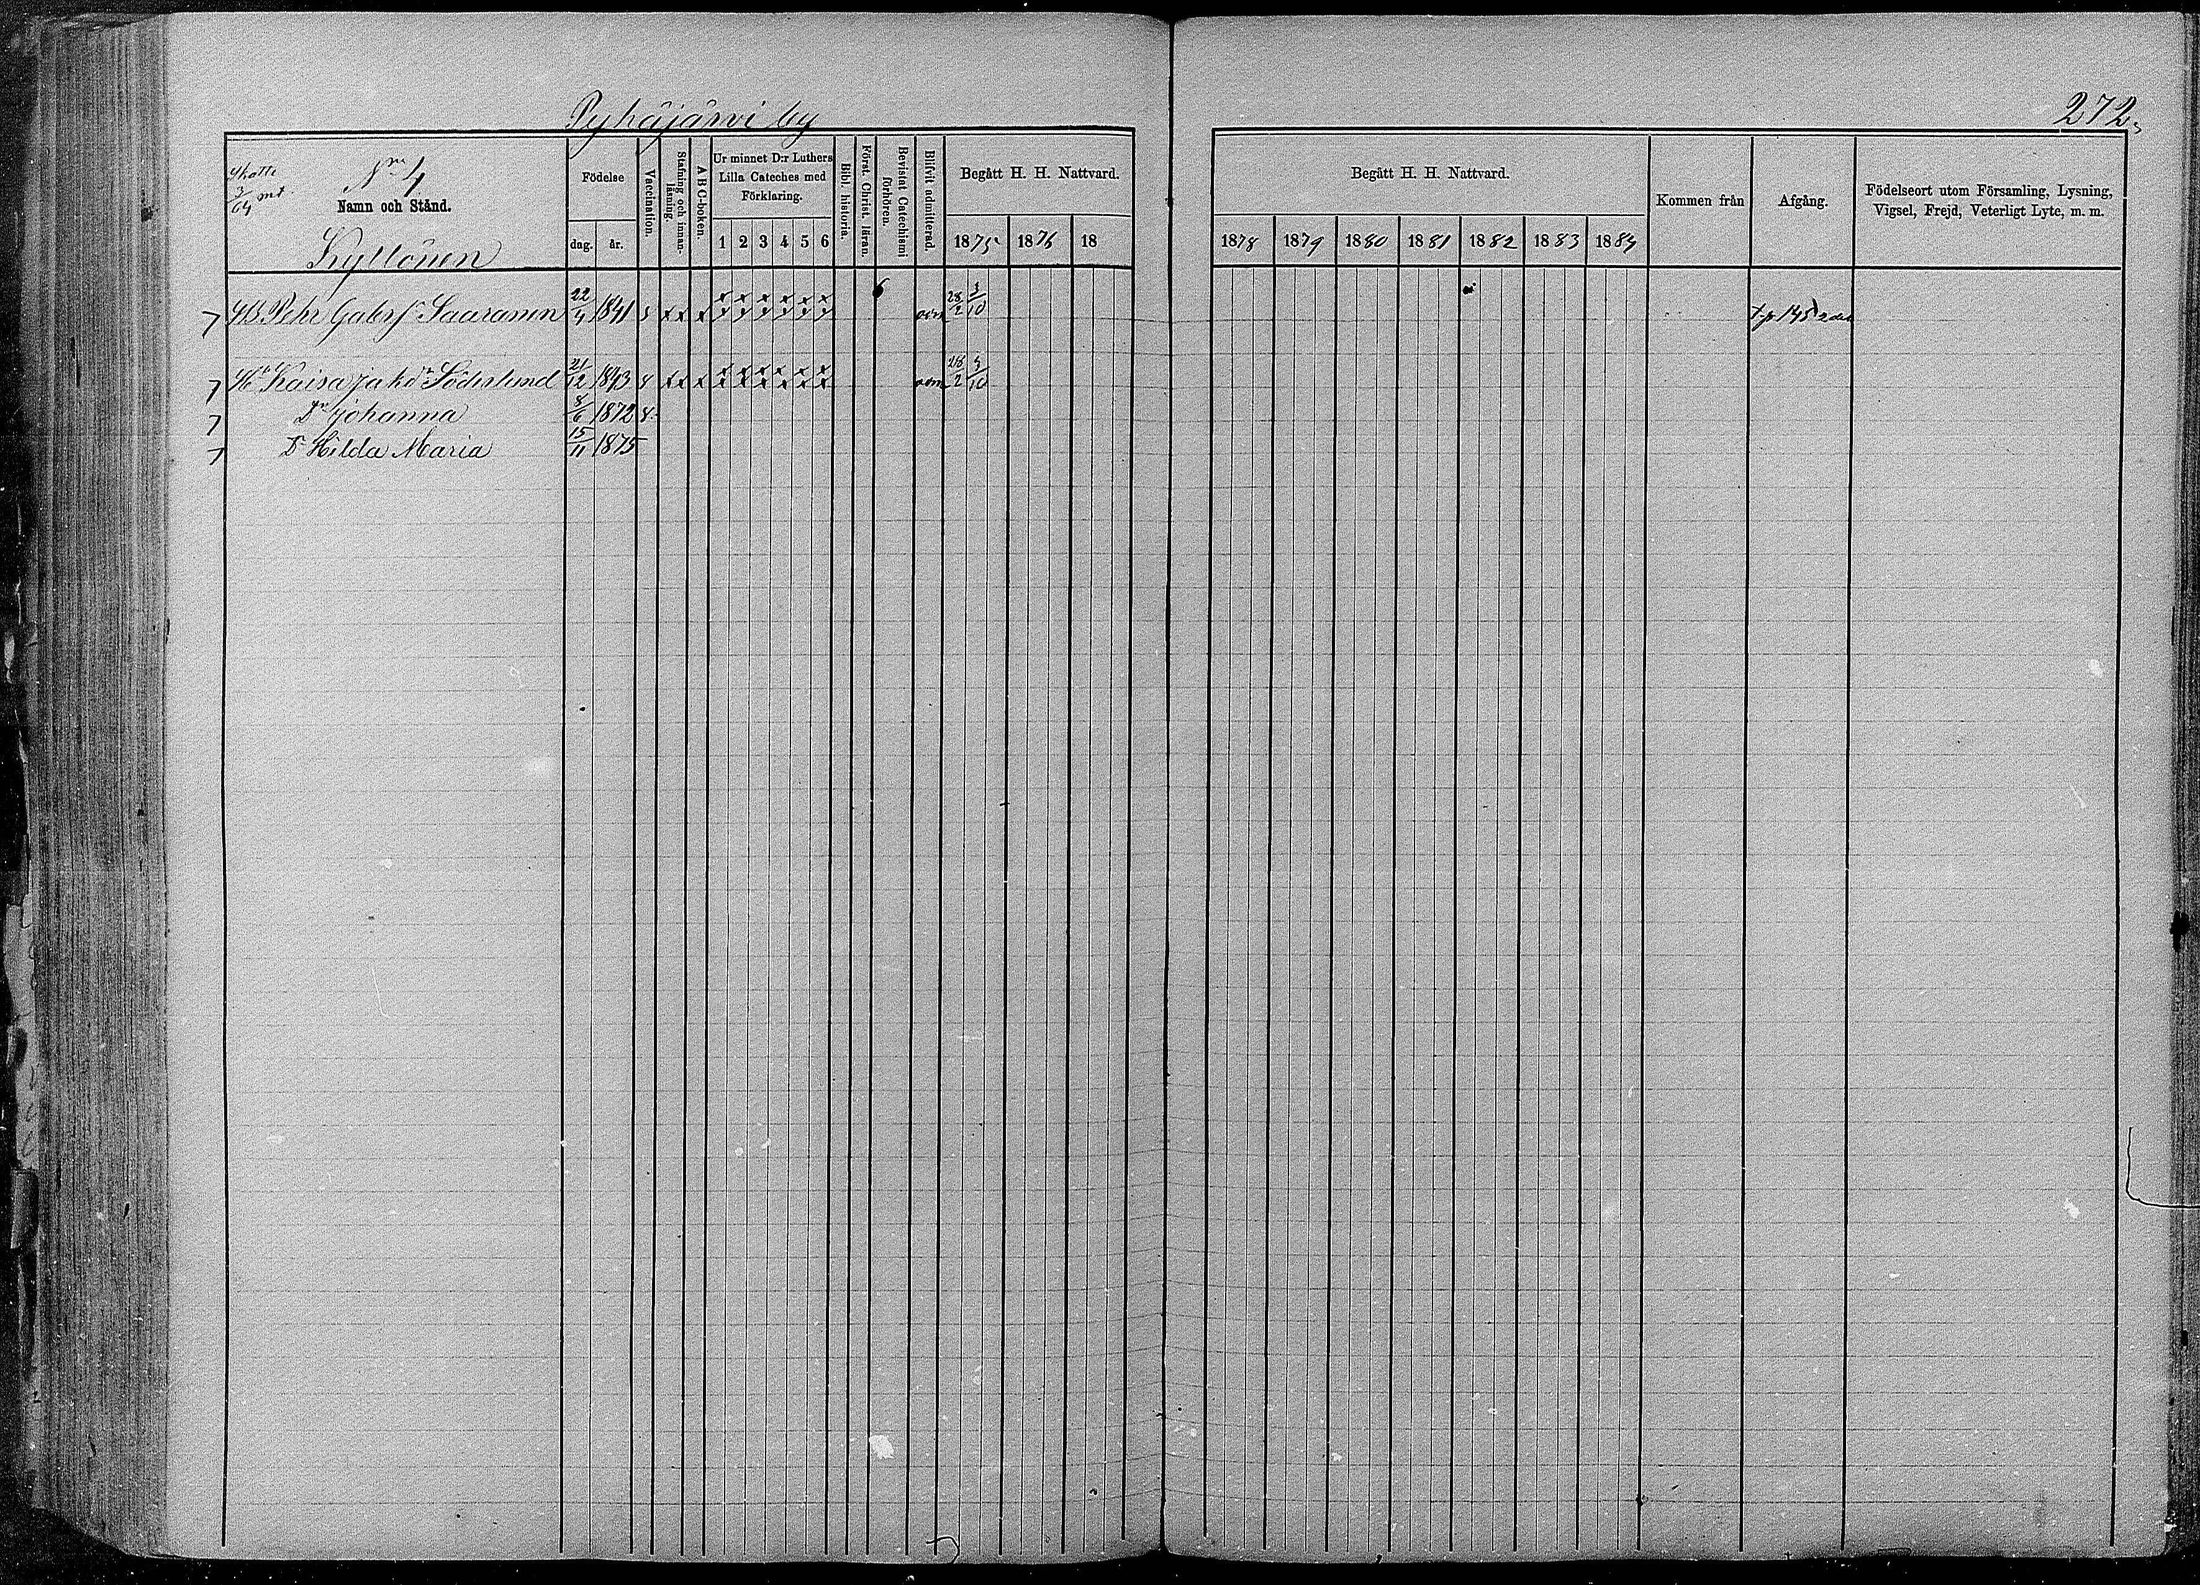 Pyhäjärvi by
272.
Skatte
3/64 mt
No 4
Namn och Stånd.
Kyllönen
Födelse
dag. år.
Vaccination.
Stafning och innanläsning.
A B C-boken.
Ur minnet D:r Luthers
Lilla Cateches med
Förklaring.
1 2 3 4 5 6
Bibl. historia.
Först. Christ. läran.
Bevistat Catechismi förhören.
Blifvit admitterad.
Begått H. H. Nattvard.
1875 1876 18
Begått H. H. Nattvard.
1878 1879 1880 1881 1882 1883 1884
Kommen från
Afgång.
Födelseort utom Församling, Lysning,
Vigsel, Frejd, Veterligt Lyte, m. m.
Pehr Gabrs Saaranen 22/4 1841 x x x x x x x x x 28/2 3/10
Hu Kaisa Jakdr Söderlund 21/12 1843 x x x x x x x x x 28/2 3/10
Dr Johanna 8/6 1872
Dr Hilda Maria 15/11 1875